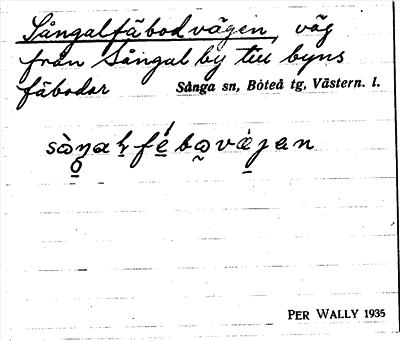 Sångalfäbodvägen, väg
från Sångal by till byns
fäbodar Sånga sn, Boteå tg, Västern. l.
PER WALLY 1935